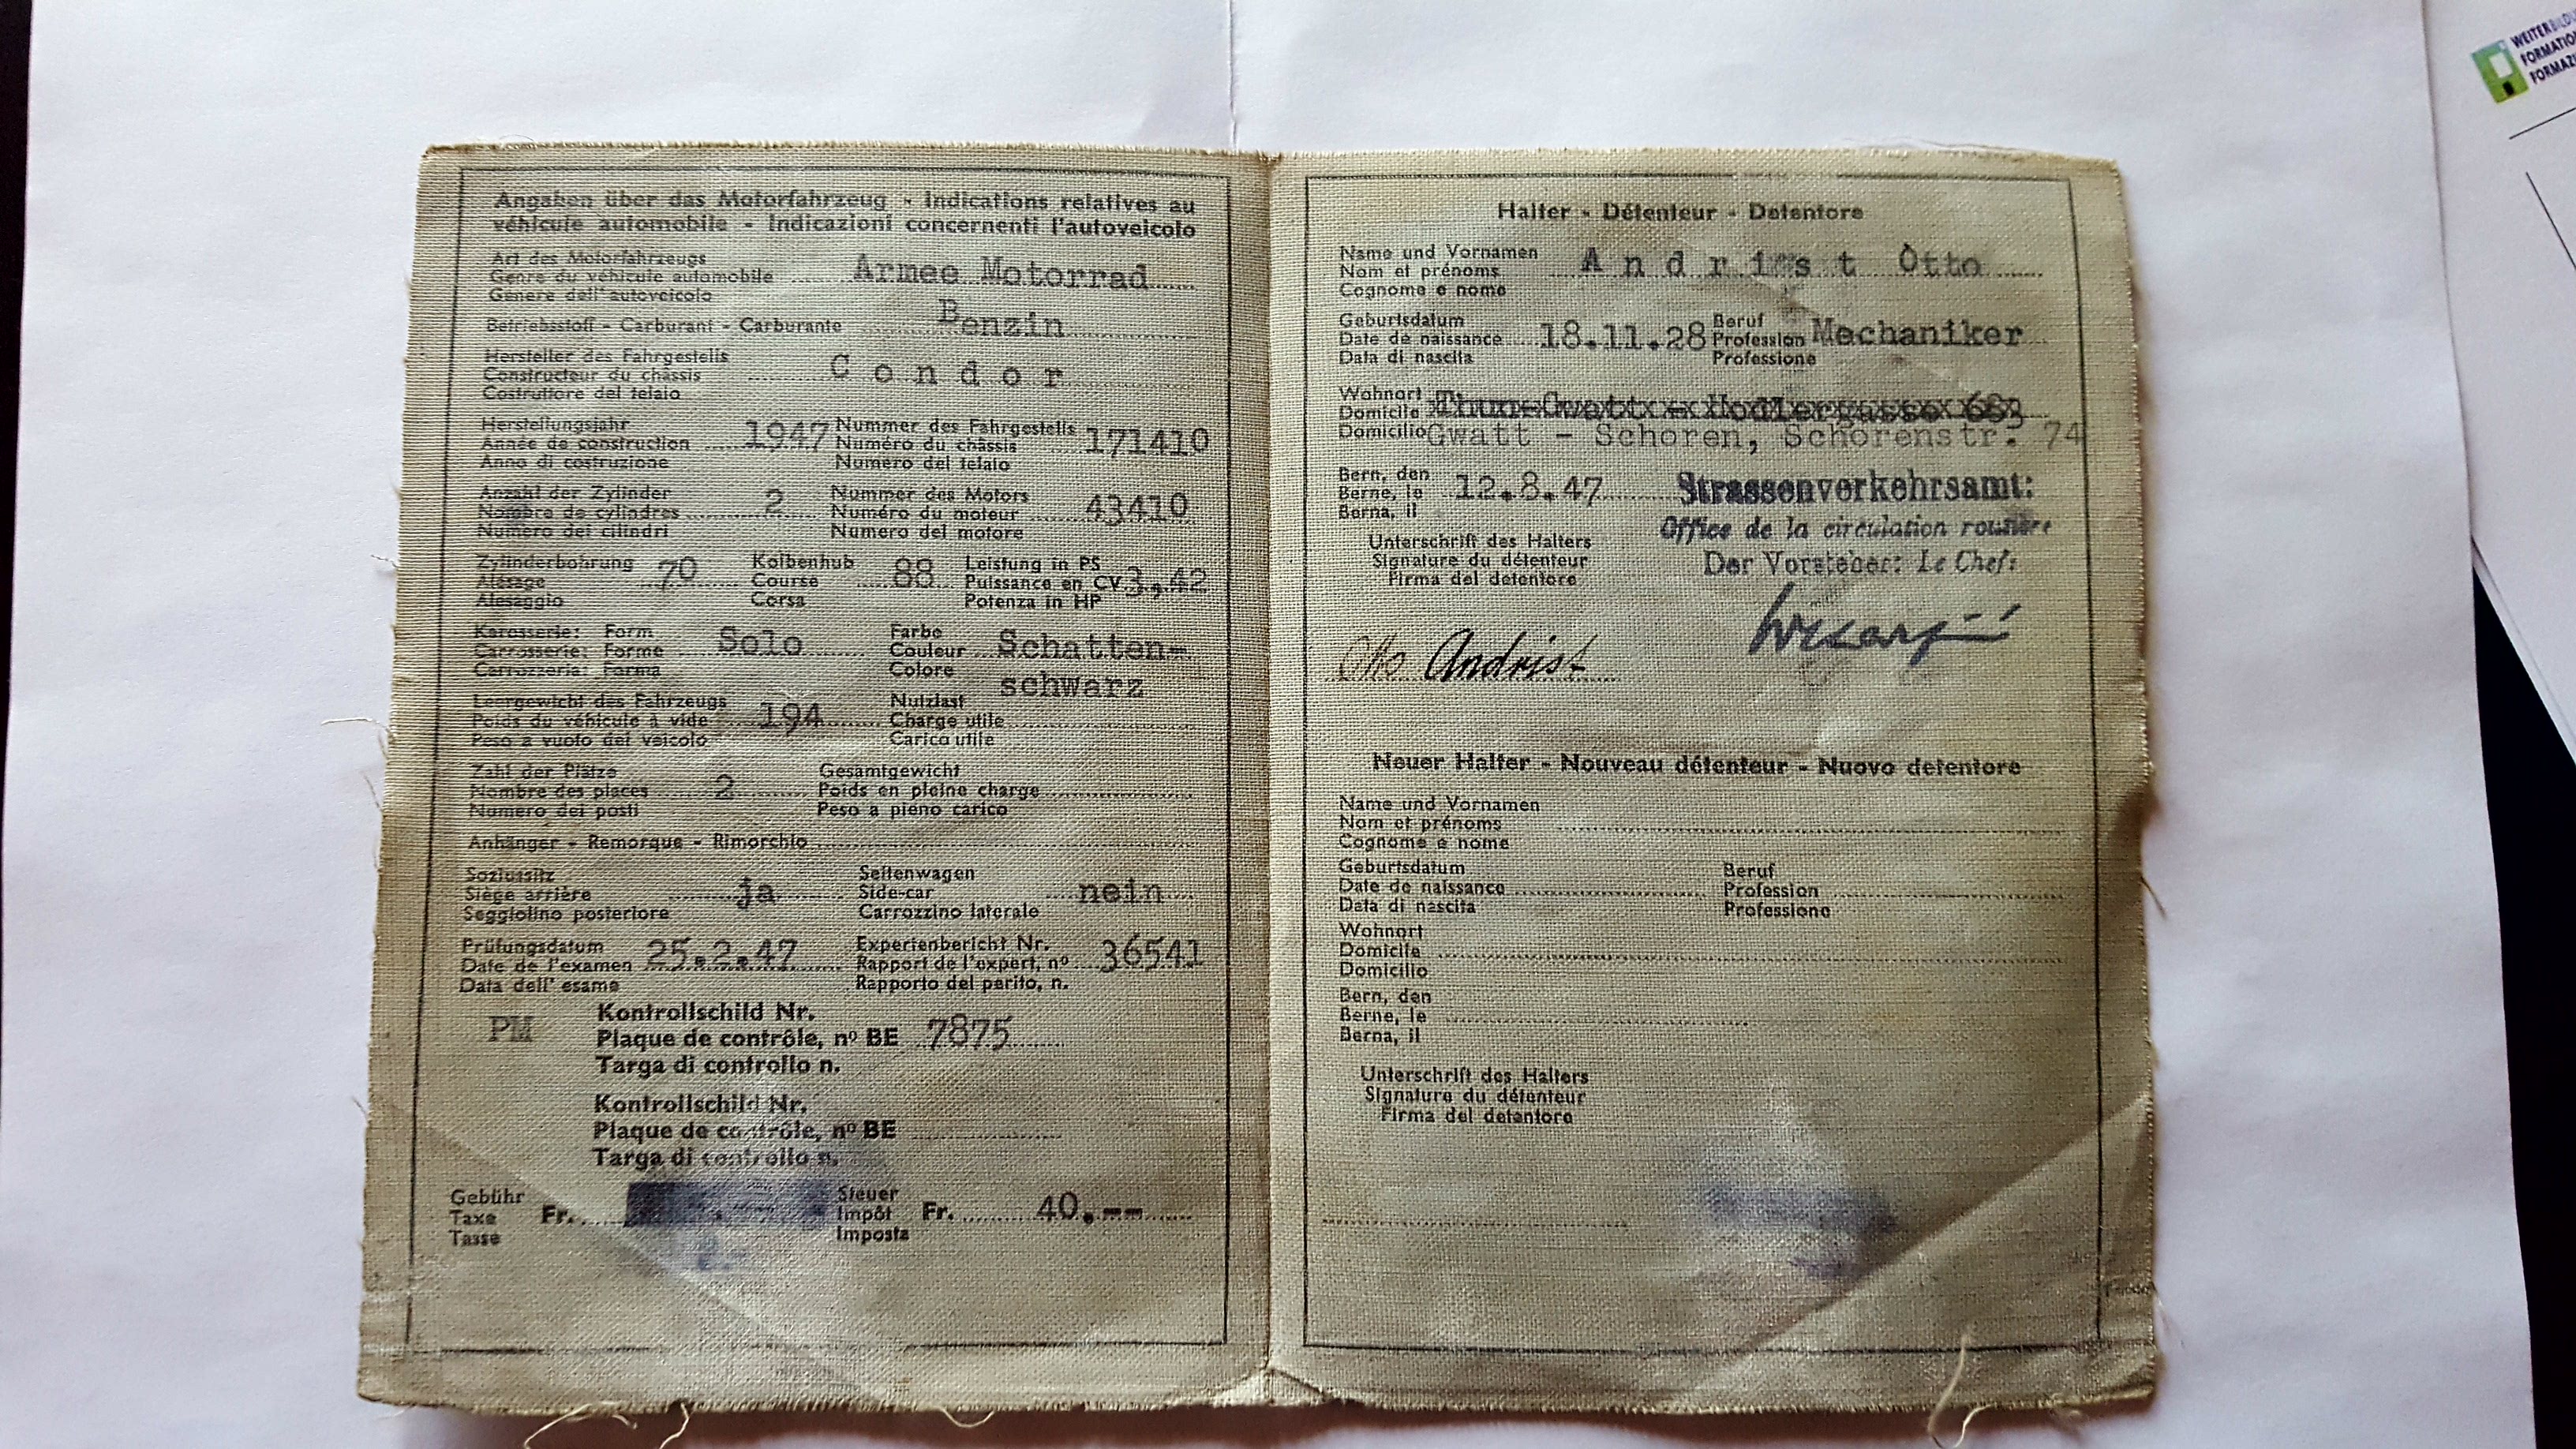 Angaben über das Motorfahrzeug - Indications relatives au
véhicule automobile - Indicazioni concernenti l'autoveicolo
Art des Motorfahrzeugs
Genre du véhicule automobile Armee Motorrad
Genere dell'autoveicolo
Betriebsstoff - Carburant - Carburante Benzin
Hersteller des Fahrgestells
Constructeur du châssis Condor
Costruttore del telaio
Herstellungsjahr Nummer des Fahrgestells
Année de construction 1947 Numéro du châssis 171410
Anno di costruzione Numero del telaio
Anzahl der Zylinder Nummer des Motors
Nombre de cylindres 2 Numéro du moteur 43410
Numero dei cilindri Numero del motore
Zylinderbohrung Kolbenhub Leistung in PS
Alésage 70 Course 88 Puissance en CV 3,42
Alesaggio Corsa Potenza in HP
Karosserie: Form Farbe
Carrosserie: Forme Solo Couleur Schatten-
Carrozzeria: Forma Colore schwarz
Leergewicht des Fahrzeugs Nutzlast
Poids du véhicule à vide 194 Charge utile
Peso a vuoto del veicolo Carico utile
Zahl der Plätze Gesamtgewicht
Nombre des places 2 Poids en pleine charge
Numero dei posti Peso a pieno carico
Anhänger - Remorque - Rimorchio
Soziussitz Seitenwagen
Siège arrière ja Side-car nein
Seggiolino posteriore Carrozzino laterale
Prüfungsdatum Expertenbericht Nr.
Date de l'examen 25.2.47 Rapport de l'expert, nº 36541
Data dell' esame Rapporto del perito, n.
Kontrollschild Nr.
PM Plaque de contrôle, nº BE 7875
Targa di controllo n.
Kontrollschild Nr.
Plaque de contrôle, nº BE
Targa di controllo n.
Gebühr Steuer
Taxe Fr. Impôt Fr. 40.--
Tasse Imposta
Halter - Détenteur - Detentore
Name und Vornamen
Nom et prénoms Andrist Otto
Cognome e nome
Geburtsdatum Beruf
Date de naissance 18.11.28 Profession Mechaniker
Data di nascita Professione
Wohnort
Domicile Thun-Gwatt
Domicilio Gwatt - Schoren, Schorenstr. 74
Bern, den
Berne, le 12.8.47
Berna, il
Strassenverkehrsamt:
Office de la circulation routière
Der Vorsteher: Le Chef:
Unterschrift des Halters
Signature du détenteur
Firma del detentore
Otto Andrist
Neuer Halter - Nouveau détenteur - Nuovo detentore
Name und Vornamen
Nom et prénoms
Cognome e nome
Geburtsdatum Beruf
Date de naissance Profession
Data di nascita Professione
Wohnort
Domicile
Domicilio
Bern, den
Berne, le
Berna, il
Unterschrift des Halters
Signature du détenteur
Firma del detentore